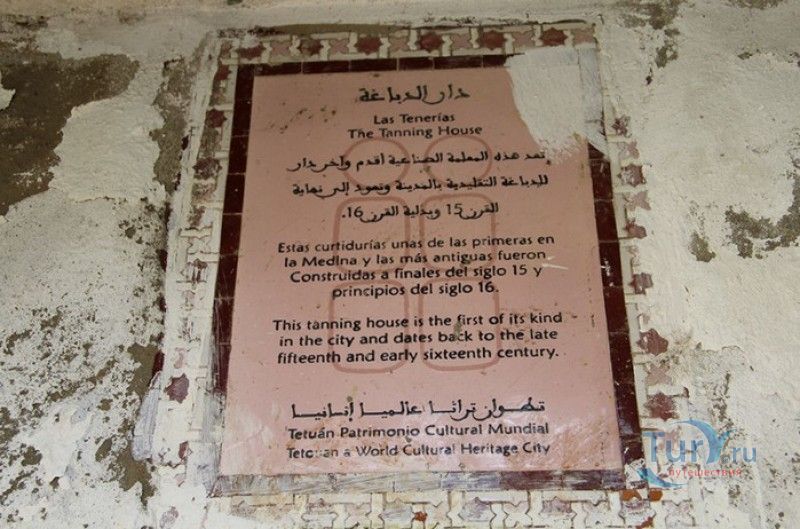 دار الدباغة
Las Tenerías
The Tanning House
تعد هذه المعلمة الصناعية أقدم وآخر دار
للدباغة التقليدية بالمدينة وتعود إلى نهاية
القرن 15 وبداية القرن 16.
Estas curtidurías unas de las primeras en
la Medina y las más antiguas fueron
Construidas a finales del siglo 15 y
principios del siglo 16.
This tanning house is the first of its kind
in the city and dates back to the late
fifteenth and early sixteenth century.
تطوان تراثا عالميا إنسانيا
Tetuán Patrimonio Cultural Mundial
Tetouan a World Cultural Heritage City
Tury.ru
путешествия